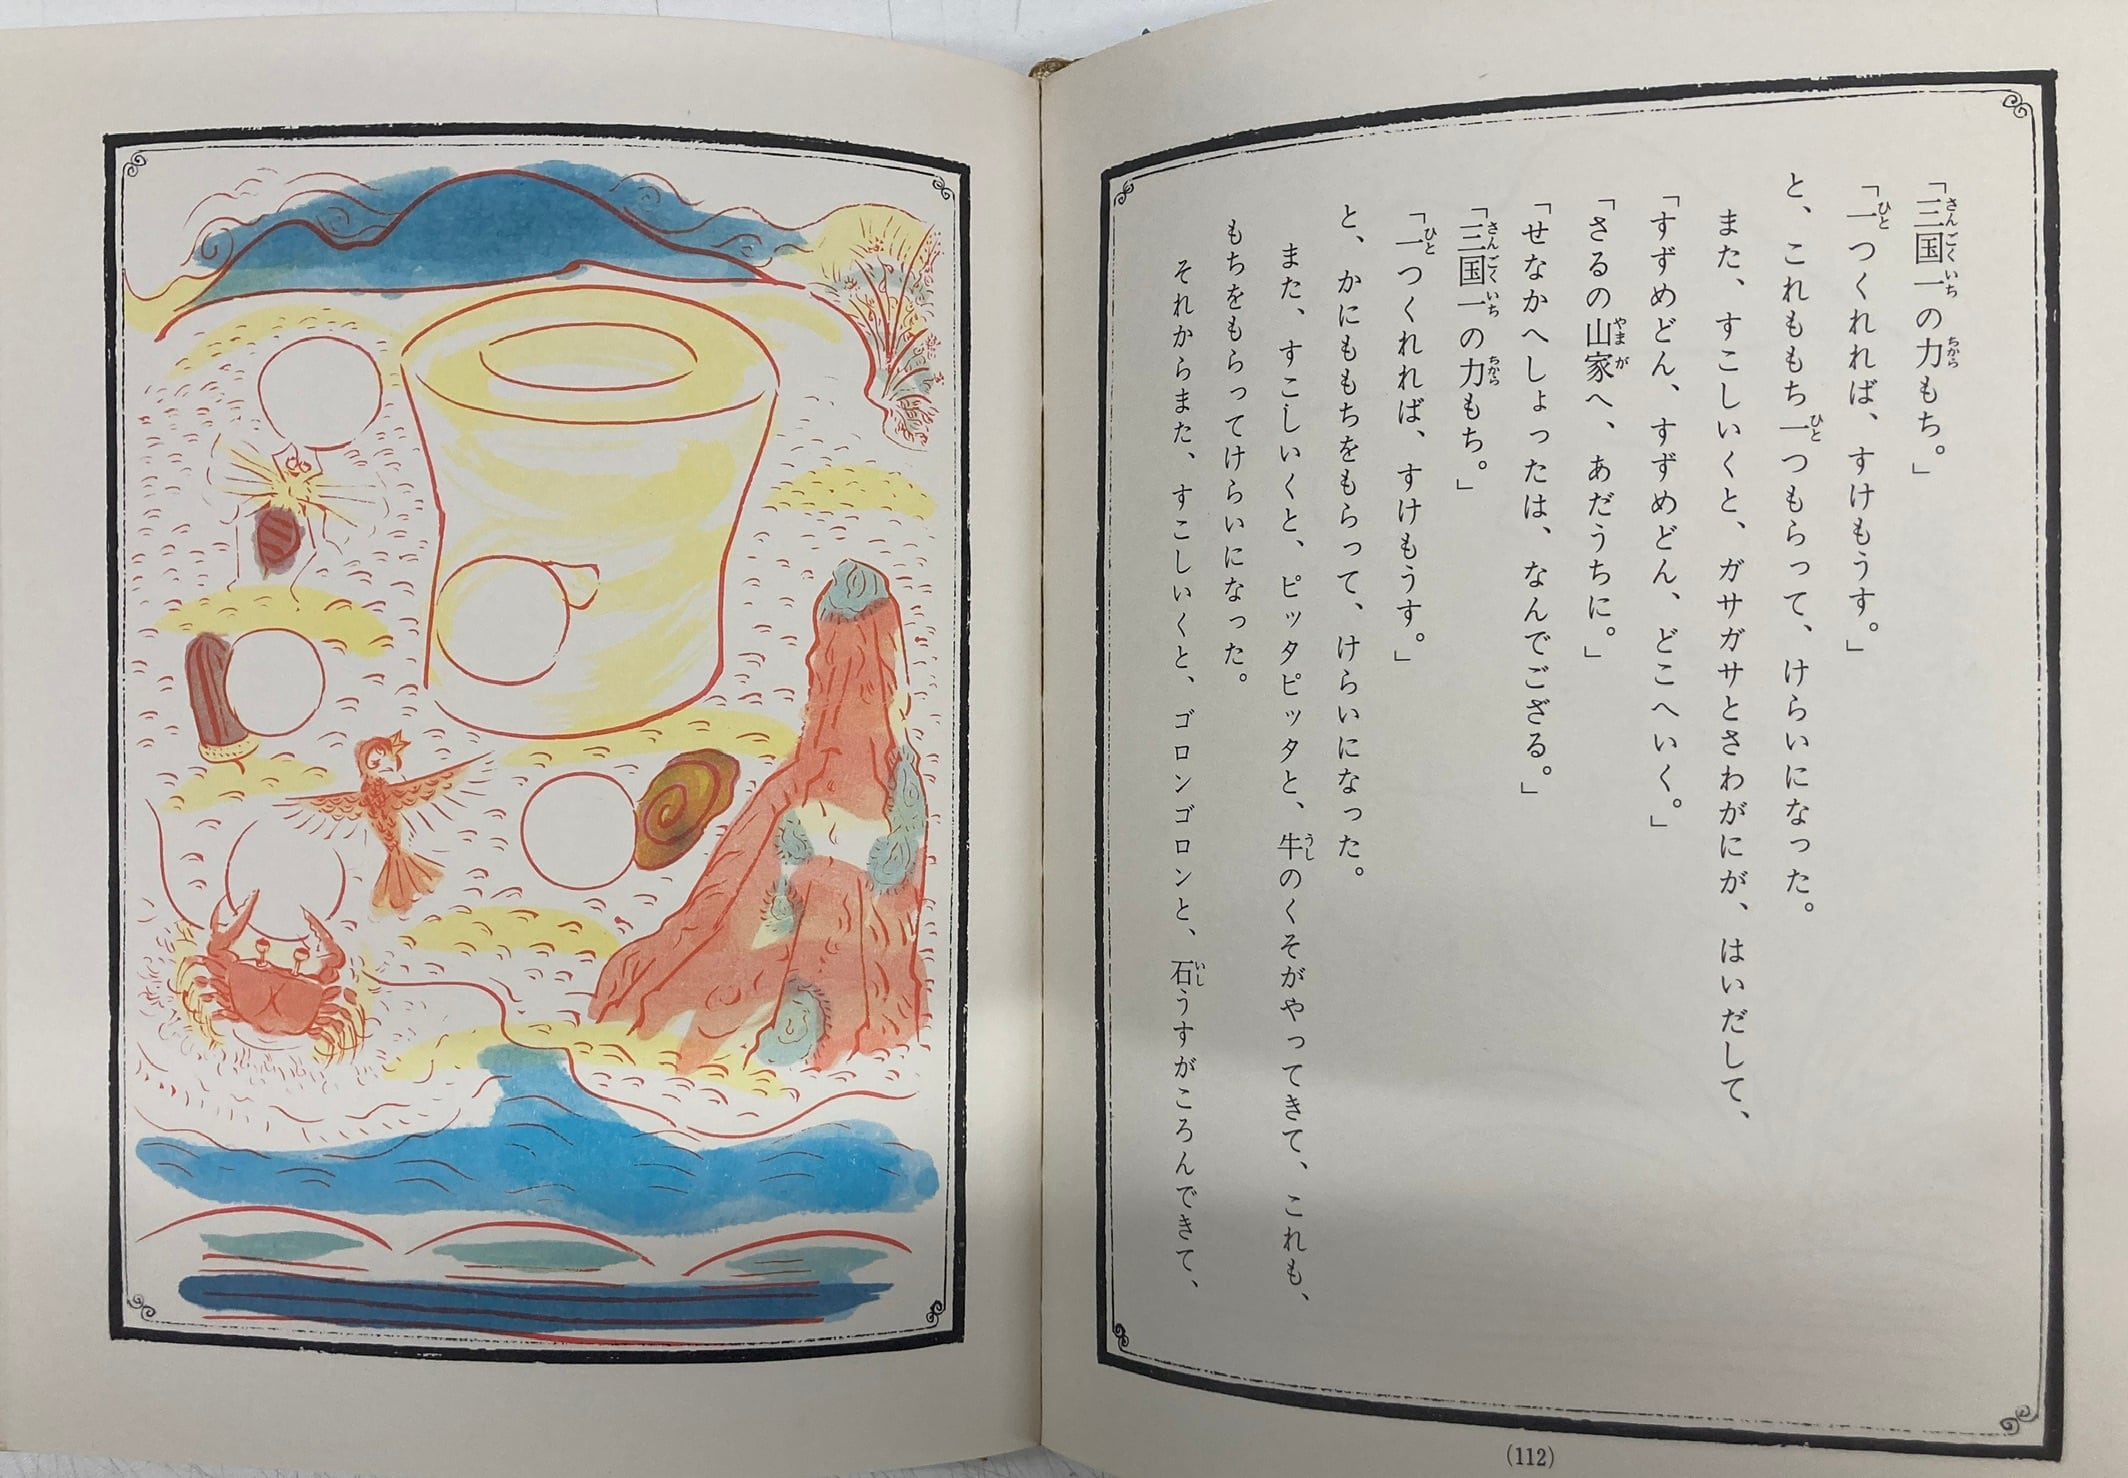 「三国一の力もち。」
「一つくれれば、すけもうす。」
と、これももち一つもらって、けらいになった。
また、すこしいくと、ガサガサとさわがにが、はいだして、
「すずめどん、すずめどん、どこへいく。」
「さるの山家へ、あだうちに。」
「せなかへしょったは、なんでござる。」
「三国一の力もち。」
「一つくれれば、すけもうす。」
と、かにももちをもらって、けらいになった。
また、すこしいくと、ピッタピッタと、牛のくそがやってきて、これも、
もちをもらってけらいになった。
それからまた、すこしいくと、ゴロンゴロンと、石うすがころんできて、
(112)